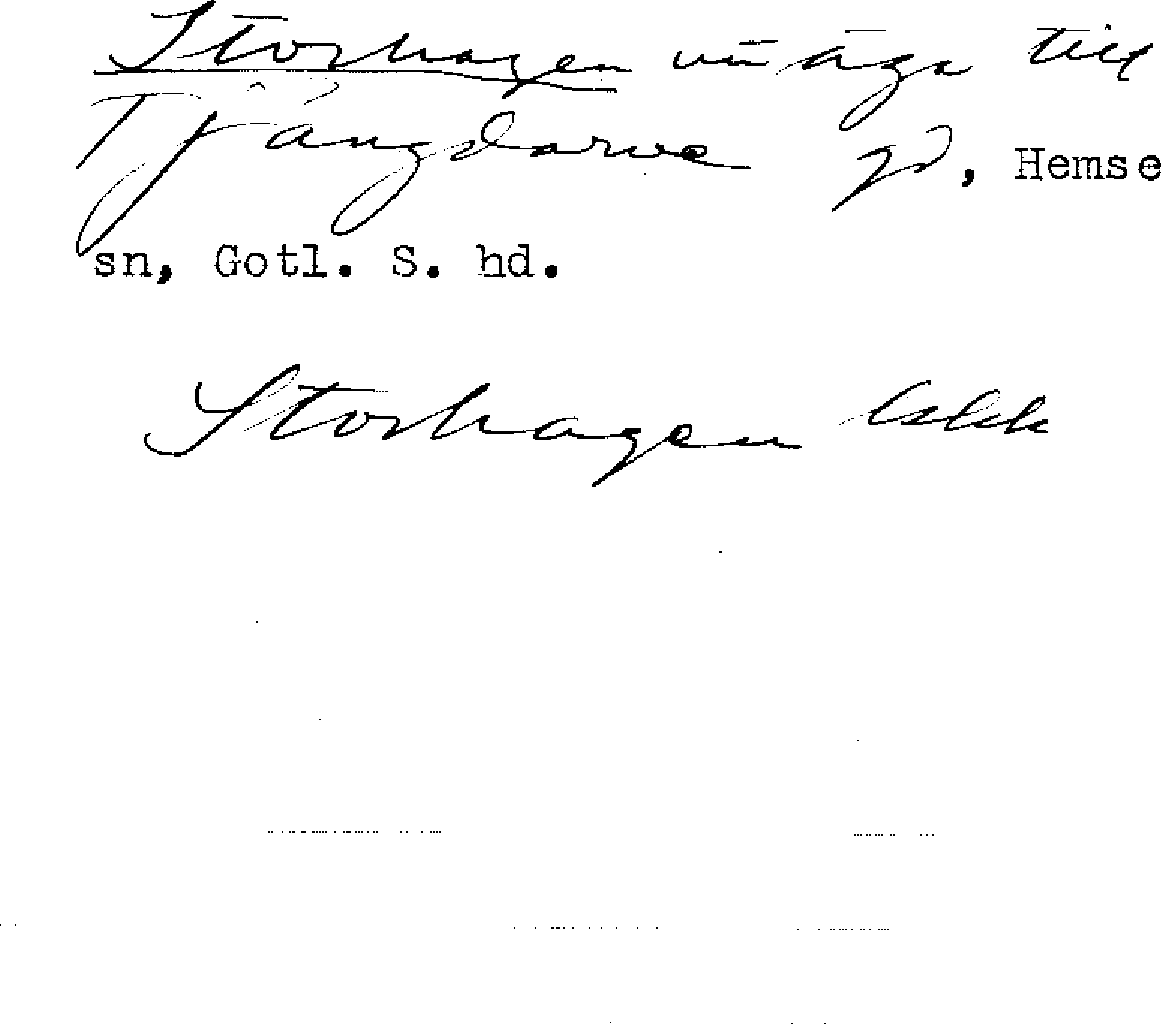 Storhagen un äga till
Tjängdarve gd, Hemse
sn, Gotl. S. hd.
Storhagen